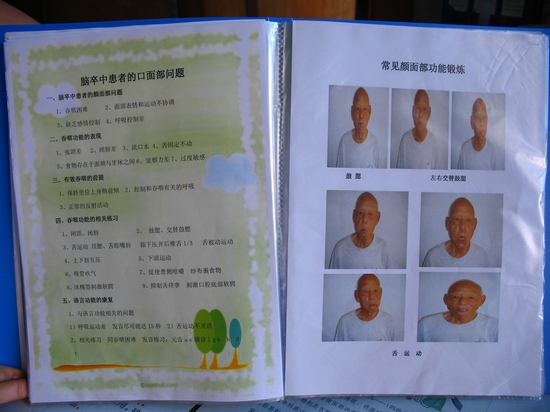 脑卒中患者的口面部问题
一、脑卒中患者的颜面部问题
1、吞咽困难 2、面部表情和运动不协调
3、缺乏感情控制 4、呼吸控制差
二、吞咽功能的表现
1、张颌差 2、闭唇差 3、流口水 4、舌固定不动
5、食物存在于面颊与牙床之间 6、定颚力差 7、过度敏感
三、有效吞咽的前提
1、保持坐位上身稍前倾 2、控制和吞咽有关的呼吸
3、正常的反射活动
四、吞咽功能的相关练习
1、闭颌、闭唇 2、鼓腮、交替鼓腮
3、舌运动 顶腮、舌舔嘴唇 舔下压并后推舌1/3 舌被动运动
4、上下唇互压 5、下颌运动
6、吸管吹气 7、促使患侧咀嚼 纱布裹食物
8、冰棉签刺激软腭 9、抑制舌痉挛 刺激口腔底部软腭
五、语言功能的康复
1、与语言功能相关的问题
1)呼吸运动差 发音尽可能达15秒 2)舌运动不灵活
2、相关练习 同吞咽困难 发音练习:元音
常见颜面部功能锻炼
鼓腮
左右交替鼓腮
舌运动